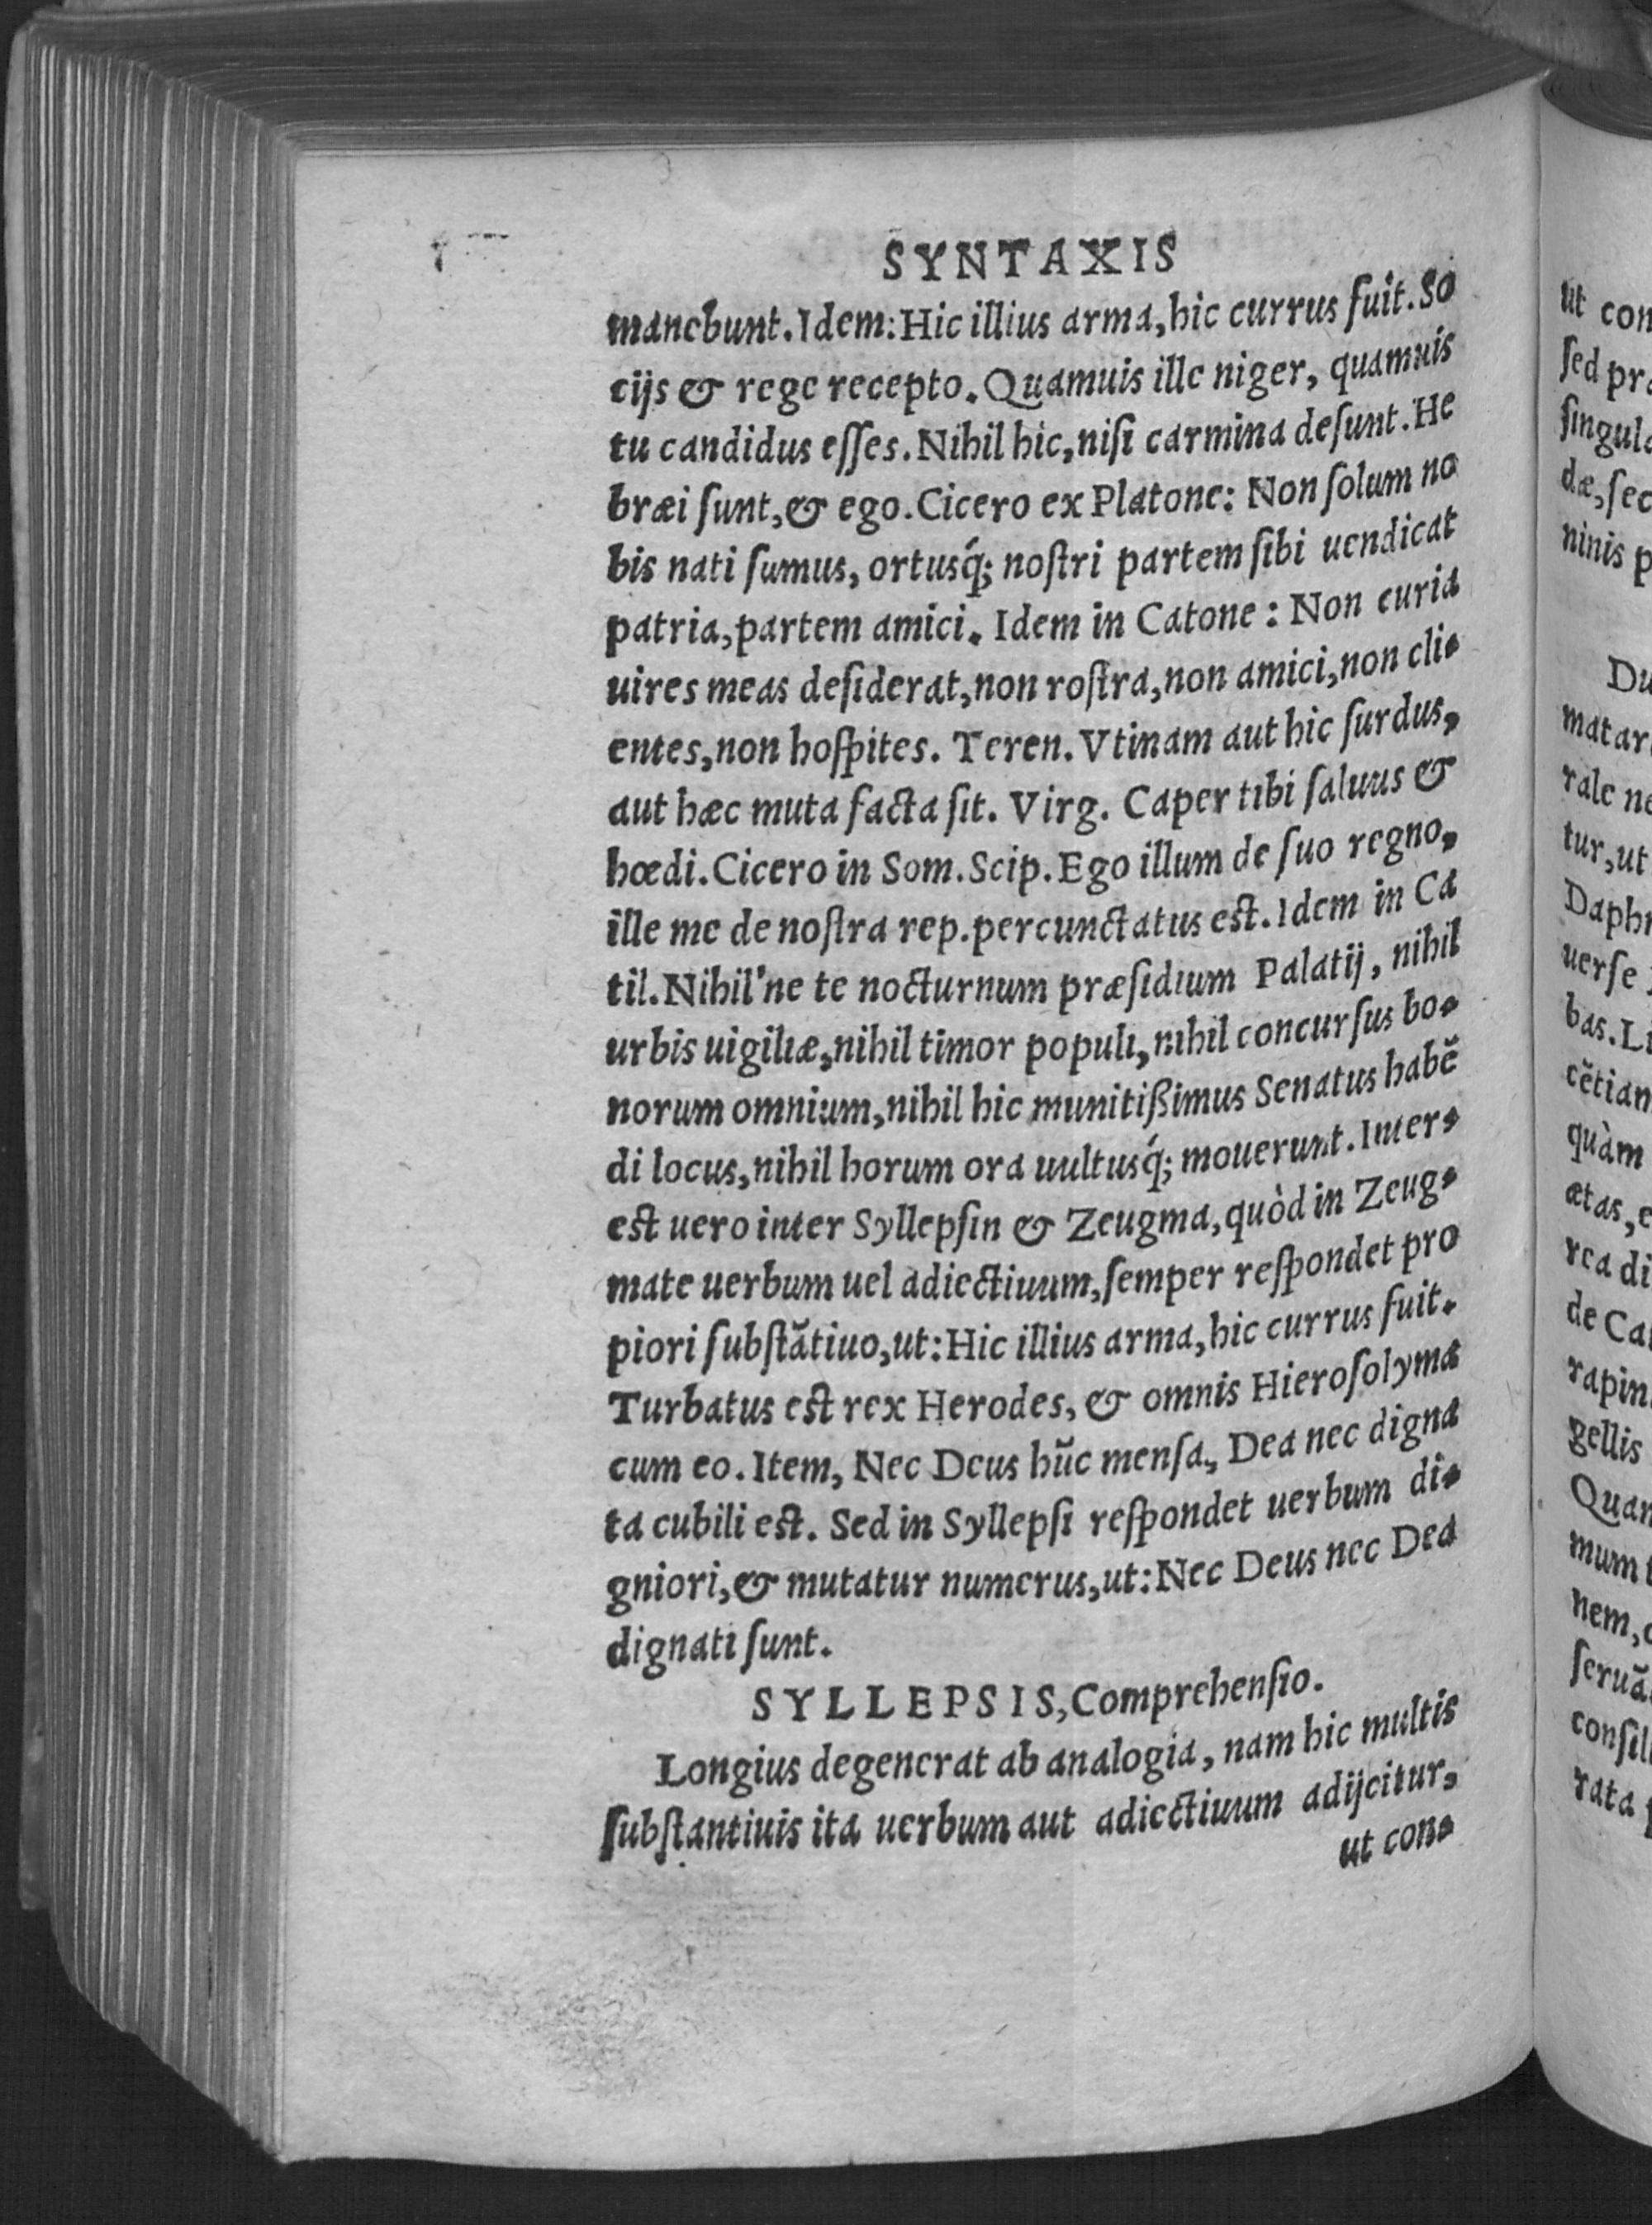 SYNTAXIS
manebunt. Idem: Hic illius arma, hic currus fuit. So
cijs & rege recepto. Quamuis ille niger, quamuis
tu candidus eſſes. Nihil hic, niſi carmina deſunt. He
bræi ſunt, & ego. Cicero ex Platone: Non ſolum no
bis nati ſumus, ortusq́; noſtri partem ſibi uendicat
patria, partem amici. Idem in Catone: Non curia
uires meas deſiderat, non roſtra, non amici, non cli-
entes, non hoſpites. Teren. Vtinam aut hic ſurdus,
aut hæc muta facta ſit. Virg. Caper tibi ſaluus &
hœdi. Cicero in Som. Scip. Ego illum de ſuo regno,
ille me de noſtra rep. percunctatus eſt. Idem in Ca
til. Nihil'ne te nocturnum præſidium Palatij, nihil
urbis uigiliæ, nihil timor populi, nihil concurſus bo-
norum omnium, nihil hic munitißimus Senatus habẽ
di locus, nihil horum ora uultusq́; mouerunt. Inter-
eſt uero inter Syllepſin & Zeugma, quòd in Zeug-
mate uerbum uel adiectiuum, ſemper reſpondet pro
piori ſubſtãtiuo, ut: Hic illius arma, hic currus fuit.
Turbatus eſt rex Herodes, & omnis Hieroſolyma
cum eo. Item, Nec Deus hũc menſa, Dea nec digna
ta cubili eſt. Sed in Syllepſi reſpondet uerbum di-
gniori, & mutatur numerus, ut: Nec Deus nec Dea
dignati ſunt.
SYLLEPSIS, Comprehenſio.
Longius degenerat ab analogia, nam hic multis
ſubſtantiuis ita uerbum aut adiectiuum adijcitur,
ut con-
ut con
ſed pr
ſingul
dæ, ſec
ninis p
Du
matar
rale ne
tur, ut
Daph
uerſe
bas. L
cẽtian
quàm
ætas, e
rea di
de Ca
rapin
gellis
Quan
mum
nem,
ſeruã
conſil
rata